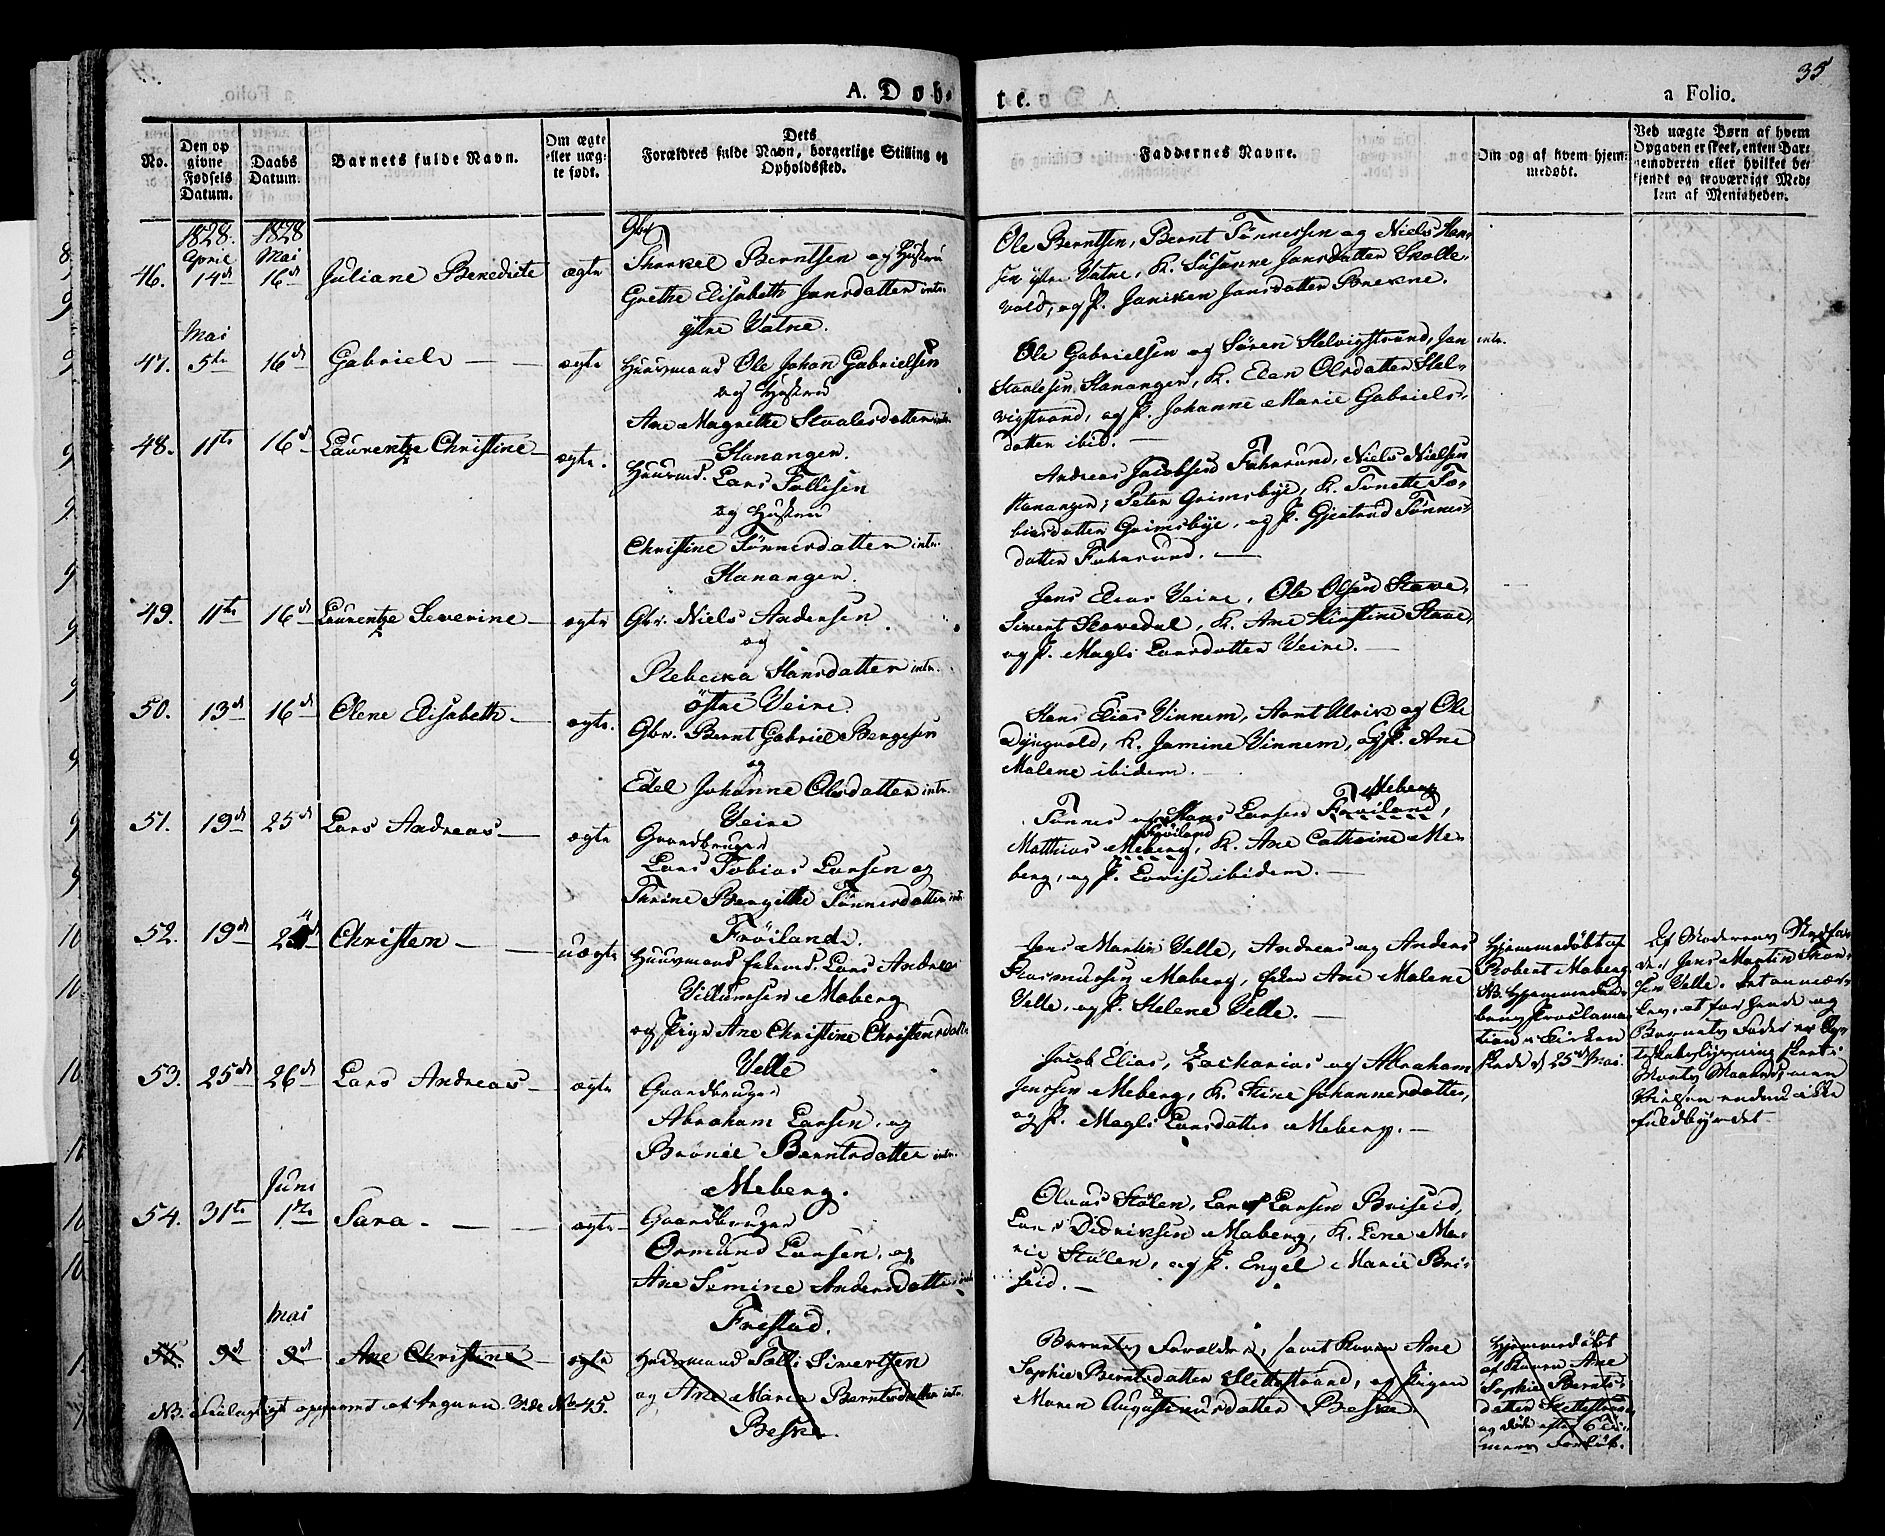 35
A. Døb-
te.
a Folio.
No.
Den op
givne
Fødsels
Datum.
Daabs
Datum.
Barnets fulde Navn.
Om ægte
eller uæg-
te født.
Dets
Forældres fulde Navn, borgerlige Stilling og
Opholdssted.
Faddernes Navne.
Om og af hvem hjem-
medøbt.
Ved uægte Børn af hvem
Opgaven er skeet, enten Bar-
nemoderen eller hvilket be-
kjendt og troværdigt Med-
lem af Menigheden.
1828. 1828
April Mai
46. 14de 16de Juliane Benedicte ægte
Gbr.
Thorkel Berntsen og Hustru
Grethe Elisabeth Jansdatter intr.
ytre Vatne.
Ole Berntsen, Bernt Tønnessen og Niels Han-
sen ytre Vatne, K. Susanne Jansdatter Skolle-
vold, og P. Janiken Jansdatter Brekne.
Mai
47. 5te 16de Gabriel ægte
Huusmand Ole Johan Gabrielsen
og Hustru
Ane Magrethe Staalesdatter intr.
Hanangen.
Ole Gabrielsen og Søren Helvigstrand, Jan
Staalesen Hanangen, K. Elen Olsdatter Hel-
vigstrand, og P. Johanne Marie Gabriels-
datter ibid.
intr.
48. 11te 16de Laurentze Christine ægte.
Huusmd. Lars Tollisen
og Hustru
Christine Tønnesdatter intr.
Hanangen.
Andreas Jacobsen Fuhrsund, Niels Nielsen
Hanangen, Peter Grimsbye, K. Tonette To-
biasdatter Grimsbye, og P. Gjertrud Tønnes-
datter Fuhrsund.
49. 11te 16de Laurentze Severine ægte
Gbr. Niels Andersen
og
Rebecka Hansdatter intr.
østre Veire.
Jens Elias Veire, Ole Olsen Stave,
Sivert Skovedal, K. Ane Kirstine Stave,
og P. Magli Larsdatter Veire.
50. 13de 16de Olene Elisabeth ægte.
Gbr. Bernt Gabriel Bergesen
og
Edel Johanne Olsdatter intr.
Veire
Hans Elias Vinnem, Arnt Ulrik og Ole
Dyngvold, K. Jamine Vinnem, og P. Ane
Malene ibidem.
51. 19de 25de Lars Andreas ægte
Gaardbruger
Lars Tobias Larsen og
Thrine Bergithe Tønnesdatter intr.
Frøiland.
Meberg
Tønnes og Hans Larsen Frøiland,
Frøiland
Matthias Meberg, K. Ane Cathrine Me-
berg, og P. Lovise ibidem.
52. 19de 25de Christen uægte
Huusmand Lars Andreas
Villumsen Meberg
og Pige Ane Christine Christensdatter
Velle
Jens Martin Velle, Andreas og Anders
Rasmussen Meberg, Ane Malene
Velle, og P. Helene Velle.
Hjemmedøbt af
Robert Meberg
NB. Hjemmedaa-
bens Proclama-
tion i Kirken
skede d. 25de Mai.
Af Moderens
Jens Martin
Velle. Det anmær-
kes, at for Gude og
Barnets Fader er
skeet i
Marts Maaned, men
Vielsen endnu ikke
fuldbyrdet.
53. 25de 26de Lars Andreas ægte
Gaardbruger
Abraham Larsen, og
Brønel Berntsdatter intr.
Meberg.
Jacob Elias, Zacharias og Abraham
Jenssen Meberg, K. Stine Johannesdatter,
og P. Magli Larsdatter Meberg.
Juni
54. 31te 1ste Sara. ægte
Gaardbruger
Ormund Larsen, og
Ane Semine Andersdatter intr.
Frestad.
Olaus Stølen, Lars Larsen Briseid,
Lars Didriksen Meberg, K. Lene Ma-
rie Stølen, og P. Engel Marie Bri-
seid.
Mai
55. 9de 9de Ane Christine ægte
Huusmand Tolli Sivertsen
og Ane Maria Berntsdatter intr.
Beske.
Barnets Forældre, samt Konen Ane
Sophie Berntsdatter Slettestrand, og Pigen
Maren Augustinusdatter Beske.
Hjemmedøbt
af Konen Ane
Sophie Bernts-
datter Slettestrand,
og døde efter 6 Ti-
mers Forløb.
NB. Feilagtigt opgivet at begrav. Vide No. 45.